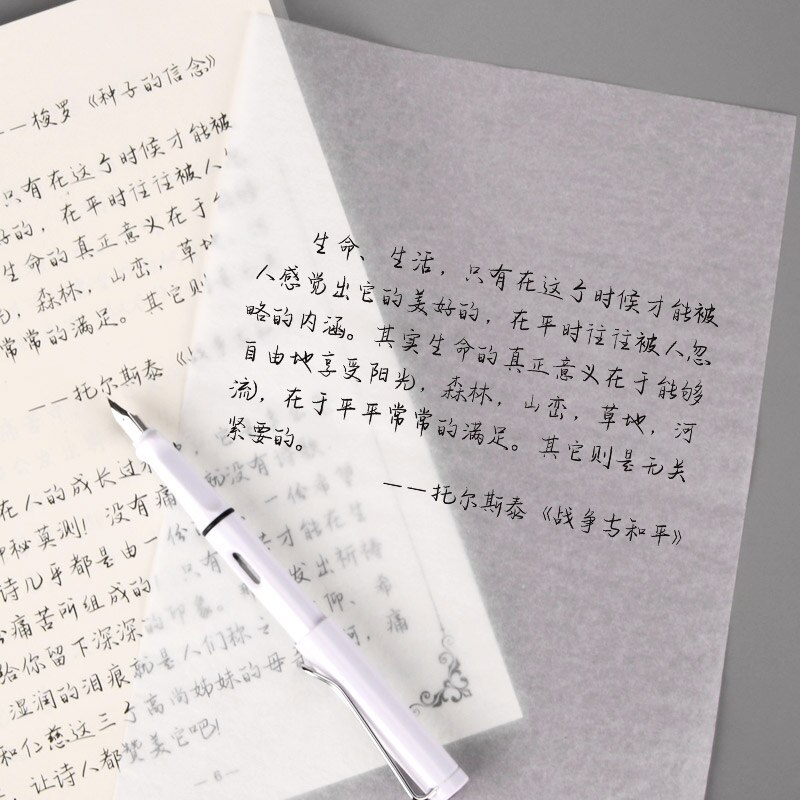 ——梭罗《种子的信念》
只有在这个时候才能被
好的，在平时往往被人
生命的真正意义在于
森林，山峦，草地
常常的满足。其它则
——托尔斯泰《
在人的成长过
神秘莫测！没有痛 就没有诗歌
诗几乎都是由一份 一份希望
痛苦所组成的 只有 才能在生
给你留下深深的印象。 发出祈待
湿润的泪痕就是人们称之 仰、希
和仁慈这三个高尚姊妹的母亲 河，痛
让诗人都赞美它吧！
—6—
生命、生活，只有在这个时候才能被
人感觉出它的美好的，在平时往往被人忽
略的内涵。其实生命的真正意义在于能够
自由地享受阳光，森林，山峦，草地，河
流，在于平平常常的满足。其它则是无关
紧要的。
——托尔斯泰《战争与和平》